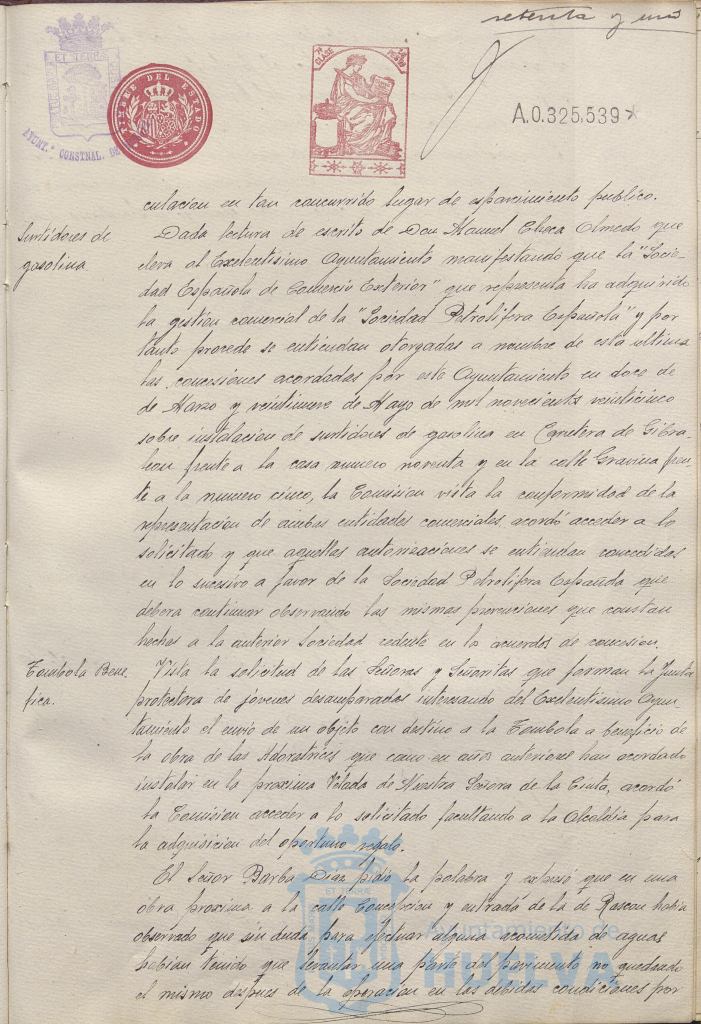 setenta y uno
ET TERRÆ
AYUNT. CONSTNAL. DE
TIMBRE DEL ESTADO
7ª CLASE
A.0.325.539*
culacion en tan concurrido lugar de esparcimiento publico.
Surtidores de gasolina
Dada lectura de escrito de Don Manuel Checa Olmedo que
eleva al Excelentisimo Ayuntamiento manifestando que la "Socie-
dad Española de Comercio Exterior" que representa ha adquirido
la gestion comercial de la "Sociedad Petrolifera Española" y por
tanto procede se entiendan otorgadas a nombre de esta ultima
las concesiones acordadas por este Ayuntamiento en doce de
de Marzo y veintinueve de Mayo de mil novecients veinticinco
sobre instalacion de surtidores de gasolina en Carretera de Gibra-
leon frente a la casa numero noventa y en la calle Gravina fren-
te a la numero cinco, la Comision vista la conformidad de la
representacion de ambas entidades comerciales acordó acceder a lo
solicitado y que aquellas autorizaciones se entiendan concedidas
en lo sucesivo a favor de la Sociedad Petrolifera Española que
debera continuar observando las mismas prevenciones que constan
hechas a la anterior Sociedad cedente en lo acuerdos de concesion.
Tombola Bene-
fica.
Vista la solicitud de las Señoras y Señoritas que forman la Junta
protectora de jovenes desamparadas interesando del Excelentisimo Ayun-
tamiento el envio de un objeto con destino a la Tombola a beneficio de
la obra de las Adoratrices que como en años anteriores han acordado
instalar en la proxima Velada de Nuestra Señora de la Cinta, acordó
la Comision acceder a lo solicitado facultando a la Alcaldia para
la adquisicion del oportuno regalo.
El Señor Barba Diaz pidió la palabra y expuso que en una
obra proxima a la calle Concepcion y entrada de la de Rascon habia
observado que sin duda para efectuar alguna acometida de aguas
habian tenido que levantar una parte del pavimento no quedando
el mismo despues de la operacion en las debidas condiciones por
ET TERRÆ
Ayuntamiento de
HUELVA